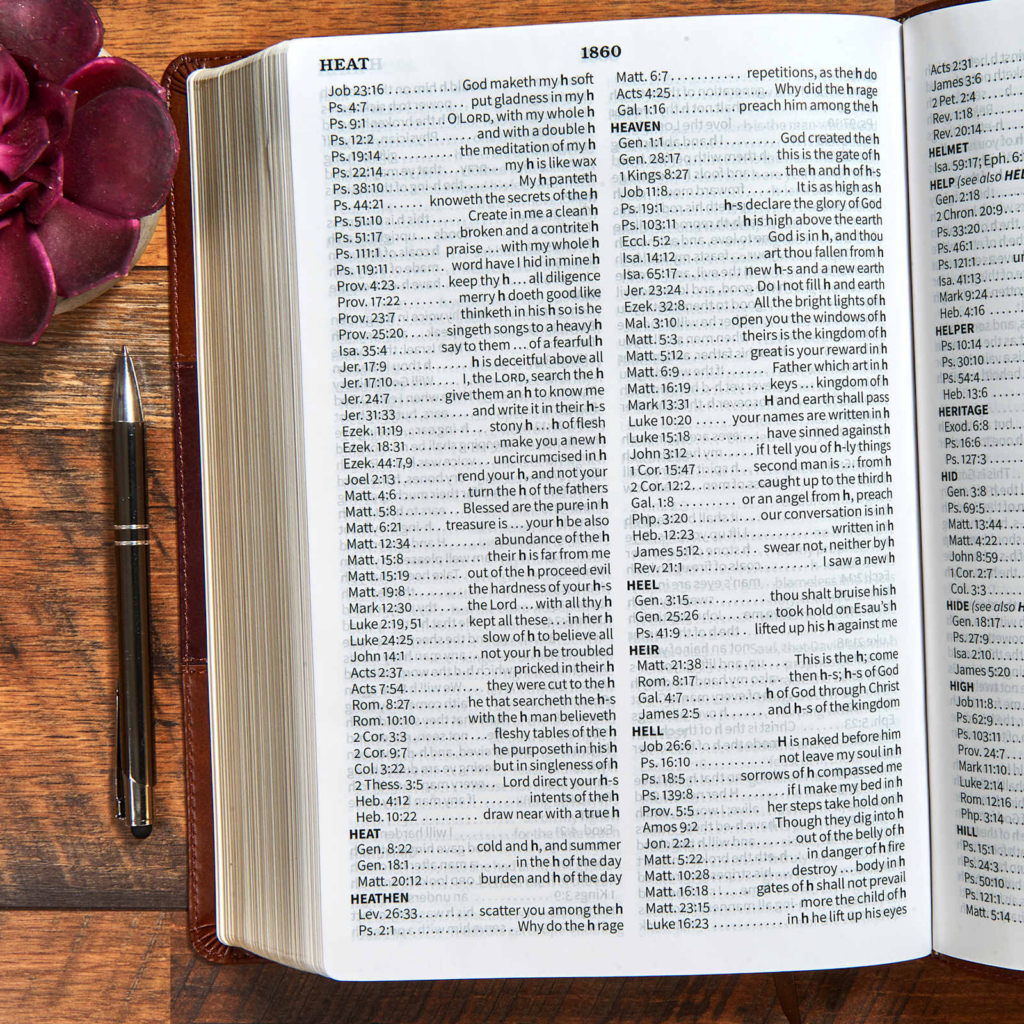 HEAT 1860
Job 23:16 . . . . . . . . God maketh my h soft
Ps. 4:7 . . . . . . . . put gladness in my h
Ps. 9:1 . . . . . . . . O LORD, with my whole h
Ps. 12:2 . . . . . . . . and with a double h
Ps. 19:14 . . . . . . . . the meditation of my h
Ps. 22:14 . . . . . . . . my h is like wax
Ps. 38:10 . . . . . . . . My h panteth
Ps. 44:21 . . . . . . . . knoweth the secrets of the h
Ps. 51:10 . . . . . . . . Create in me a clean h
Ps. 51:17 . . . . . . . . broken and a contrite h
Ps. 111:1 . . . . . . . . praise . . . with my whole h
Ps. 119:11 . . . . . . . . word have I hid in mine h
Prov. 4:23 . . . . . . . . keep thy h . . . all diligence
Prov. 17:22 . . . . . . . . merry h doeth good like
Prov. 23:7 . . . . . . . . thinketh in his h so is he
Prov. 25:20 . . . . . . . . singeth songs to a heavy h
Isa. 35:4 . . . . . . . . say to them . . . of a fearful h
Jer. 17:9 . . . . . . . . h is deceitful above all
Jer. 17:10 . . . . . . . . I, the LORD, search the h
Jer. 24:7 . . . . . . . . give them an h to know me
Jer. 31:33 . . . . . . . . and write it in their h-s
Ezek. 11:19 . . . . . . . . stony h . . . h of flesh
Ezek. 18:31 . . . . . . . . make you a new h
Ezek. 44:7,9 . . . . . . . . uncircumcised in h
Joel 2:13 . . . . . . . . rend your h, and not your
Matt. 4:6 . . . . . . . . turn the h of the fathers
Matt. 5:8 . . . . . . . . Blessed are the pure in h
Matt. 6:21 . . . . . . . . treasure is . . . your h be also
Matt. 12:34 . . . . . . . . abundance of the h
Matt. 15:8 . . . . . . . . their h is far from me
Matt. 15:19 . . . . . . . . out of the h proceed evil
Matt. 19:8 . . . . . . . . the hardness of your h-s
Mark 12:30 . . . . . . . . the Lord . . . with all thy h
Luke 2:19, 51 . . . . . . . . kept all these . . . in her h
Luke 24:25 . . . . . . . . slow of h to believe all
John 14:1 . . . . . . . . not your h be troubled
Acts 2:37 . . . . . . . . pricked in their h
Acts 7:54 . . . . . . . . they were cut to the h
Rom. 8:27 . . . . . . . . he that searcheth the h-s
Rom. 10:10 . . . . . . . . with the h man believeth
2 Cor. 3:3 . . . . . . . . fleshy tables of the h
2 Cor. 9:7 . . . . . . . . he purposeth in his h
Col. 3:22 . . . . . . . . but in singleness of h
2 Thess. 3:5 . . . . . . . . Lord direct your h-s
Heb. 4:12 . . . . . . . . intents of the h
Heb. 10:22 . . . . . . . . draw near with a true h
HEAT
Gen. 8:22 . . . . . . . . cold and h, and summer
Gen. 18:1 . . . . . . . . in the h of the day
Matt. 20:12 . . . . . . . . burden and h of the day
HEATHEN
Lev. 26:33 . . . . . . . . scatter you among the h
Ps. 2:1 . . . . . . . . Why do the h rage
Matt. 6:7 . . . . . . . . repetitions, as the h do
Acts 4:25 . . . . . . . . Why did the h rage
Gal. 1:16 . . . . . . . . preach him among the h
HEAVEN
Gen. 1:1 . . . . . . . . God created the h
Gen. 28:17 . . . . . . . . this is the gate of h
1 Kings 8:27 . . . . . . . . the h and h of h-s
Job 11:8 . . . . . . . . It is as high as h
Ps. 19:1 . . . . . . . . h-s declare the glory of God
Ps. 103:11 . . . . . . . . h is high above the earth
Eccl. 5:2 . . . . . . . . God is in h, and thou
Isa. 14:12 . . . . . . . . art thou fallen from h
Isa. 65:17 . . . . . . . . new h-s and a new earth
Jer. 23:24 . . . . . . . . Do I not fill h and earth
Ezek. 32:8 . . . . . . . . All the bright lights of h
Mal. 3:10 . . . . . . . . open you the windows of h
Matt. 5:3 . . . . . . . . theirs is the kingdom of h
Matt. 5:12 . . . . . . . . great is your reward in h
Matt. 6:9 . . . . . . . . Father which art in h
Matt. 16:19 . . . . . . . . keys . . . kingdom of h
Mark 13:31 . . . . . . . . H and earth shall pass
Luke 10:20 . . . . . . . . your names are written in h
Luke 15:18 . . . . . . . . have sinned against h
John 3:12 . . . . . . . . if I tell you of h-ly things
1 Cor. 15:47 . . . . . . . . second man is . . . from h
2 Cor. 12:2 . . . . . . . . caught up to the third h
Gal. 1:8 . . . . . . . . or an angel from h, preach
Php. 3:20 . . . . . . . . our conversation is in h
Heb. 12:23 . . . . . . . . written in h
James 5:12 . . . . . . . . swear not, neither by h
Rev. 21:1 . . . . . . . . I saw a new h
HEEL
Gen. 3:15 . . . . . . . . thou shalt bruise his h
Gen. 25:26 . . . . . . . . took hold on Esau's h
Ps. 41:9 . . . . . . . . lifted up his h against me
HEIR
Matt. 21:38 . . . . . . . . This is the h; come
Rom. 8:17 . . . . . . . . then h-s; h-s of God
Gal. 4:7 . . . . . . . . h of God through Christ
James 2:5 . . . . . . . . and h-s of the kingdom
HELL
Job 26:6 . . . . . . . . H is naked before him
Ps. 16:10 . . . . . . . . not leave my soul in h
Ps. 18:5 . . . . . . . . sorrows of h compassed me
Ps. 139:8 . . . . . . . . if I make my bed in h
Prov. 5:5 . . . . . . . . her steps take hold on h
Amos 9:2 . . . . . . . . Though they dig into h
Jon. 2:2 . . . . . . . . out of the belly of h
Matt. 5:22 . . . . . . . . in danger of h fire
Matt. 10:28 . . . . . . . . destroy . . . body in h
Matt. 16:18 . . . . . . . . gates of h shall not prevail
Matt. 23:15 . . . . . . . . more the child of h
Luke 16:23 . . . . . . . . in h he lift up his eyes
Acts 2:31
James 3:6
2 Pet. 2:4
Rev. 1:18
Rev. 20:14
HELMET
Isa. 59:17; Eph. 6:
HELP (see also HEL
Gen. 2:18
2 Chron. 20:9
Ps. 33:20
Ps. 46:1
Ps. 121:1
Isa. 41:13
Mark 9:24
Heb. 4:16
HELPER
Ps. 10:14
Ps. 30:10
Ps. 54:4
Heb. 13:6
HERITAGE
Exod. 6:8
Ps. 16:6
Ps. 127:3
HID
Gen. 3:8
Ps. 69:5
Matt. 13:44
Matt. 4:22
John 8:59
1 Cor. 2:7
Col. 3:3
HIDE (see also H
Gen. 18:17
Ps. 27:9
Isa. 2:10
James 5:20
HIGH
Job 11:8
Ps. 62:9
Ps. 103:11
Prov. 24:7
Mark 11:10
Luke 2:14
Rom. 12:16
Php. 3:14
HILL
Ps. 15:1
Ps. 24:3
Ps. 50:10
Ps. 121:1
Matt. 5:14